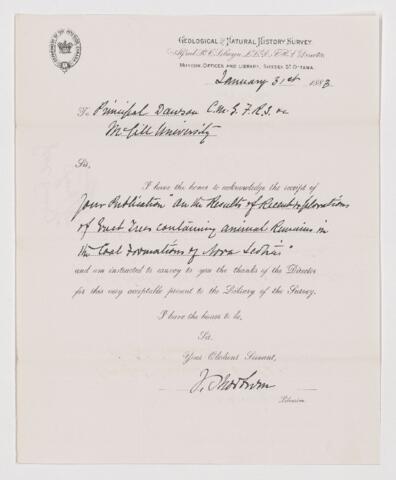 GEOLOGICAL AND NATURAL HISTORY SURVEY
Alfred R. C. Selwyn LL.D. F.R.S. Director
MUSEUM, OFFICES AND LIBRARY, SUSSEX ST. OTTAWA
January 31st 1883
To Principal Dawson C.M.G. F.R.S. &c
McGill University
Sir,
I have the honor to acknowledge the receipt of
Your Publication "On the Results of Recent Explorations
of Erect Trees containing animal Remains in
the Coal Formations of Nova Scotia"
and am instructed to convey to you the thanks of the Director
for this very acceptable present to the Library of the Survey.
I have the honor to be,
Sir,
Your Obedient Servant,
Librarian